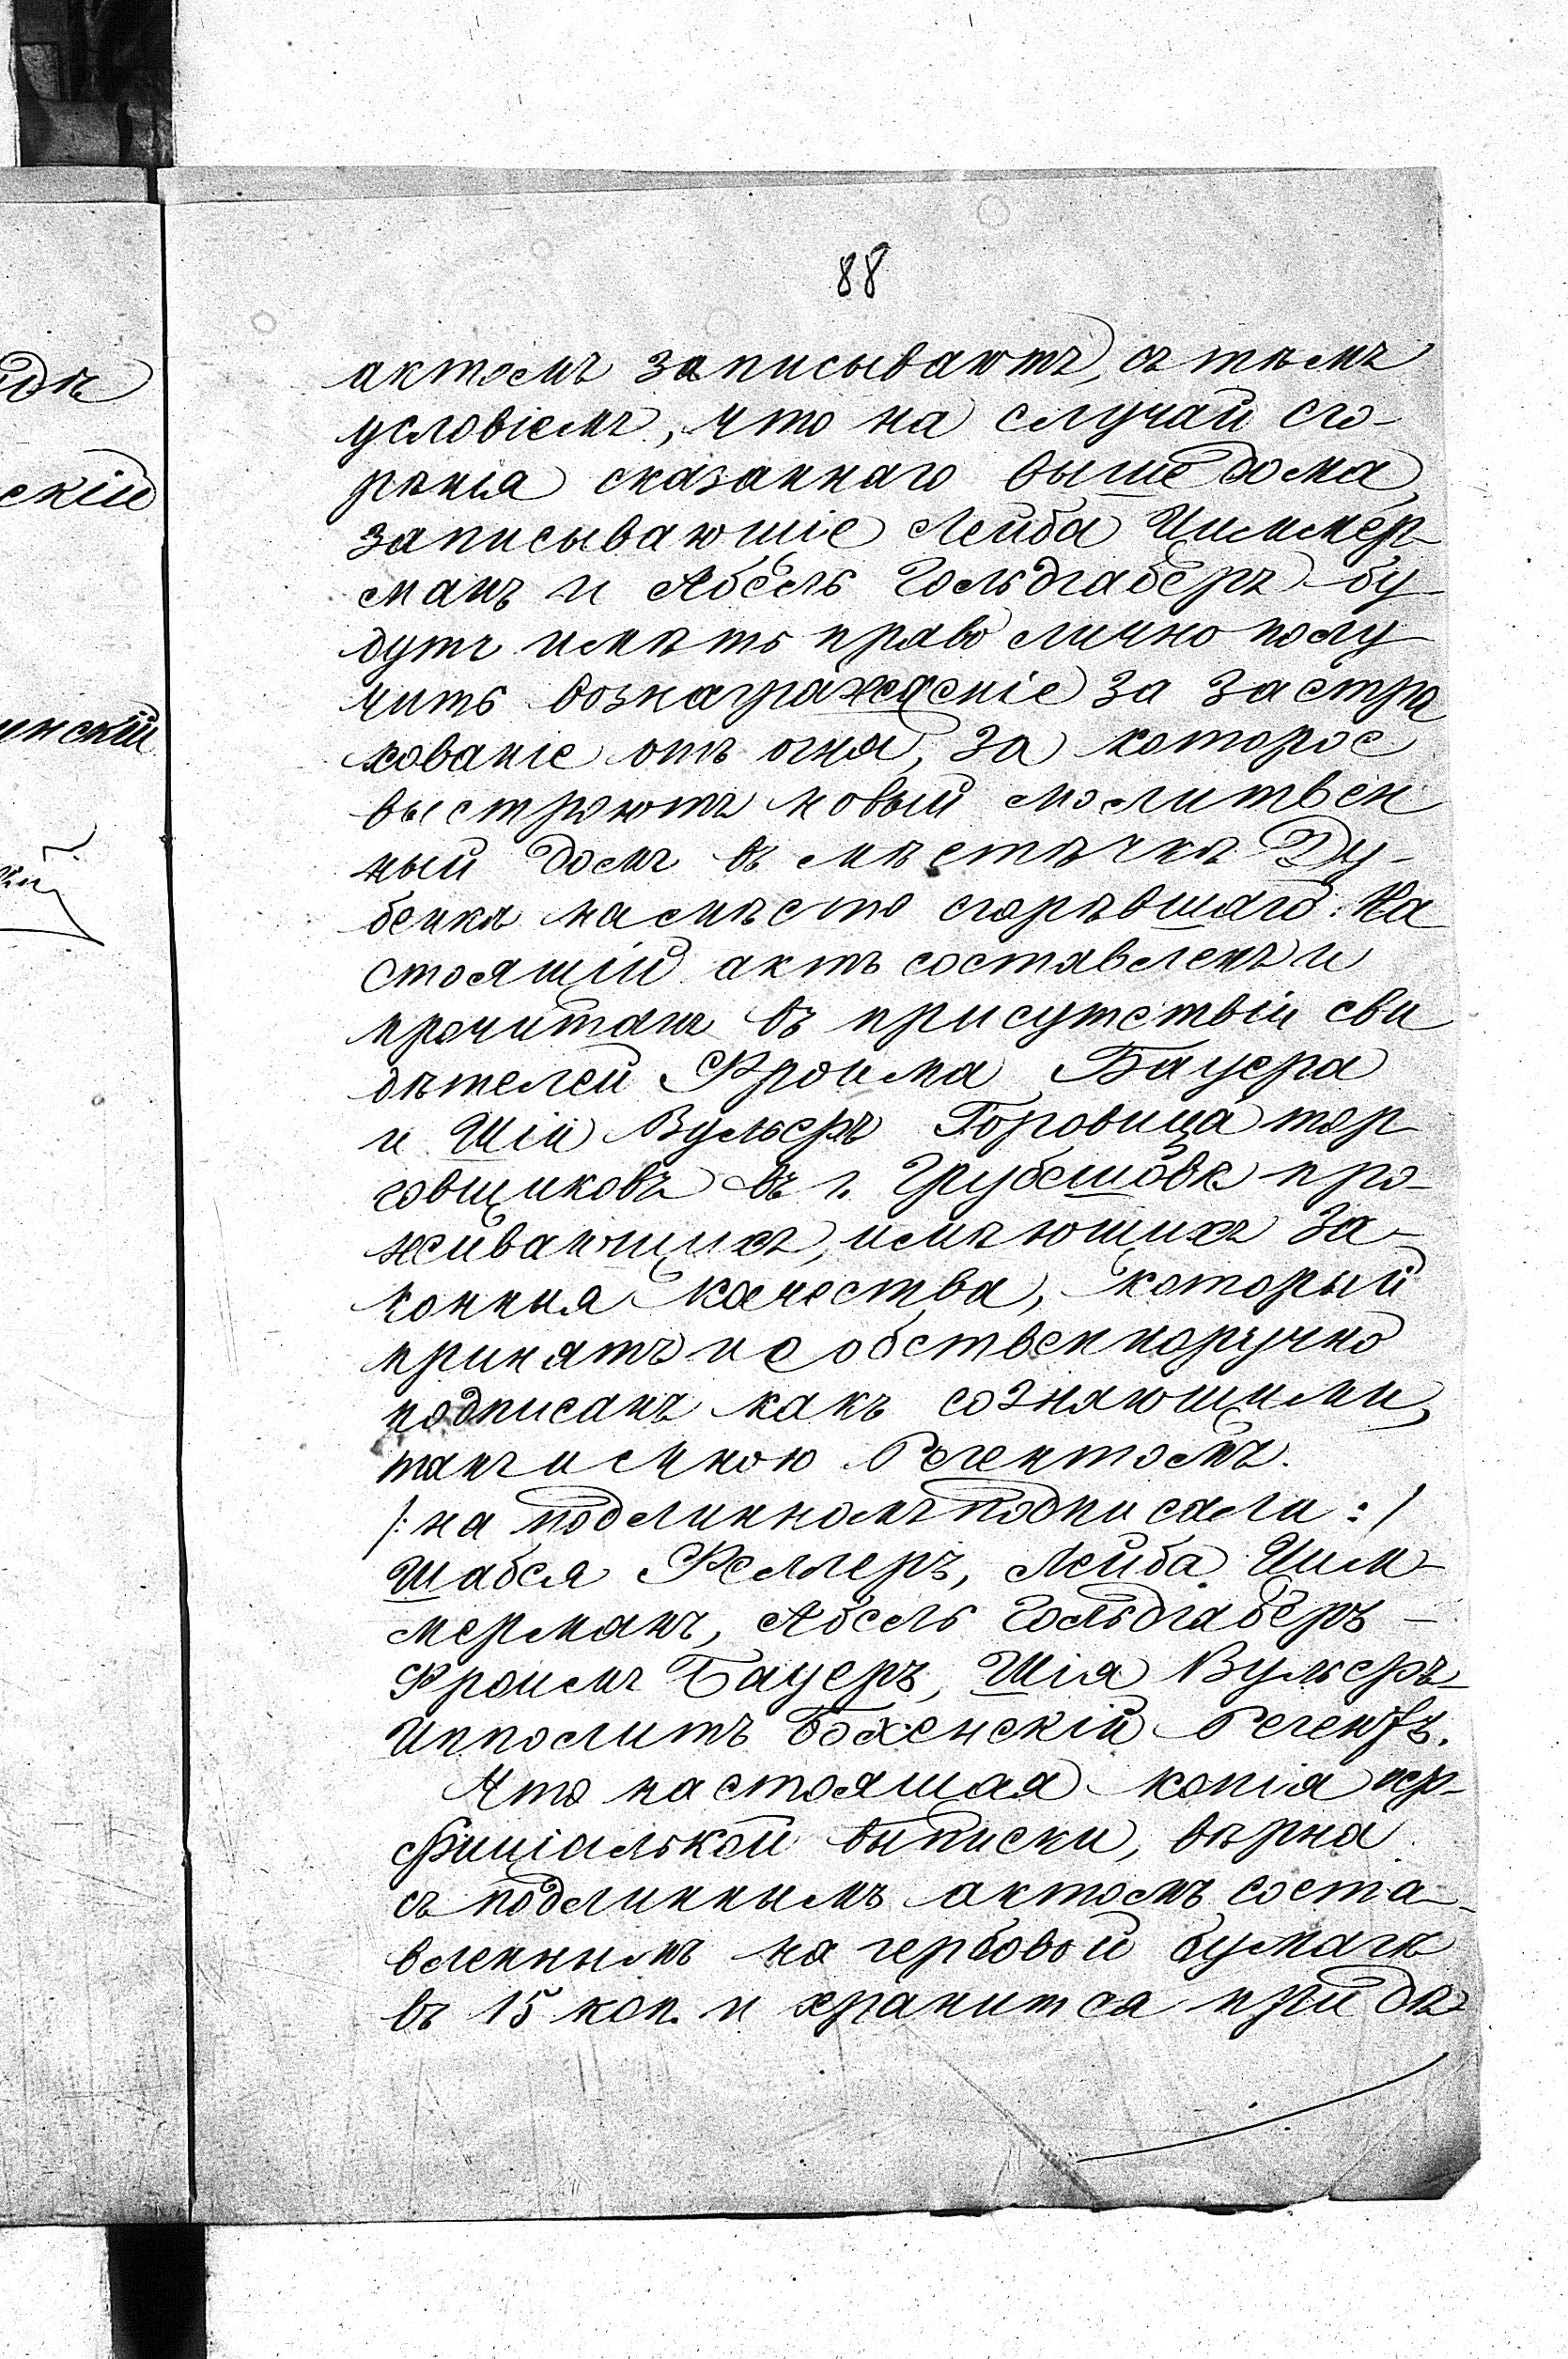 88
актомъ записываютъ, съ тѣмъ
условіемъ, что на случай сго-
рѣнія сказаннаго выше дома,
записывающіе Лейба Циммер-
манъ и Абель Гольдгаберъ бу-
дутъ имѣть право лично полу-
чить вознагражденіе за застра
хованіе отъ огня, за которое
выстроютъ новый молитвен
ный домъ въ мѣстѣчкѣ Ду-
бенкѣ на мѣсто сгорѣвшаго. На
стоящій актъ составленъ и
прочитанъ въ присутствіи сви
дѣтелей Фроима Бауера
и Шіи Вульеръ Горовица тор
говщиковъ въ г. Грубешовѣ про-
живающихъ, имѣющихъ за-
конныя качества, который
принятъ и собственноручно
подписанъ какъ сознающими,
такъ и мною Регентомъ.
/: на подлинномъ подписали :/
Шабся Феллеръ, Лейба Цим-
мерманъ, Абель Гольдгаберъ –
Фроимъ Бауеръ, Шія Вульеръ
Ипполитъ Бохенскій Регентъ.
Что настоящая копія пер-
фиціалькой выписки, вѣрна
съ подлиннымъ актомъ соста-
вленнымъ на гербовой бумагѣ
въ 15 коп. и хранится при дѣ
скій